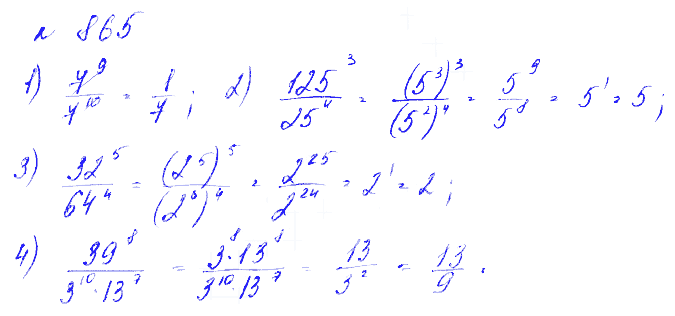 № 865
1) 7⁹/7¹⁰ = 1/7; 2) 125³/25⁴ = (5³)³/(5²)⁴ = 5⁹/5⁸ = 5¹ = 5;
3) 32⁵/64⁴ = (2⁵)⁵/(2⁶)⁴ = 2²⁵/2²⁴ = 2¹ = 2;
4) 39⁸/3¹⁰·13⁷ = 3⁸·13⁸/3¹⁰·13⁷ = 13/3² = 13/9.